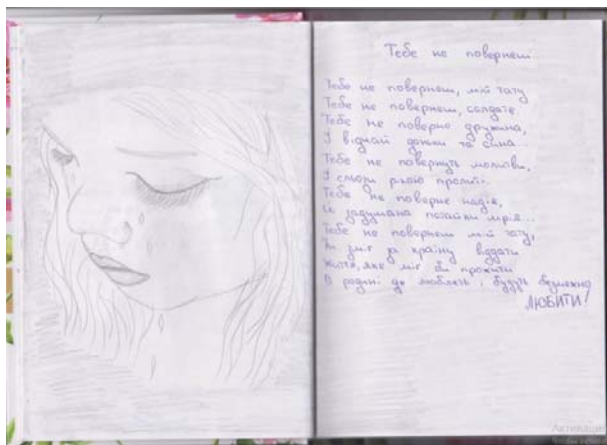 Тебе не повернеш
Тебе не повернеш, мій тату
Тебе не повернеш, солдате.
Тебе не поверне дружина,
І відчай доньки та сина...
Тебе не повернуть молитви,
І сльози рікою пролиті..
Тебе не поверне надія,
Й задумана потайки мрія...
Тебе не повернеш мій тату,
Ти зміг за країну віддати
Життя, яке міг би прожити
В родині де люблять і будуть безмежно
ЛЮБИТИ!
Активация